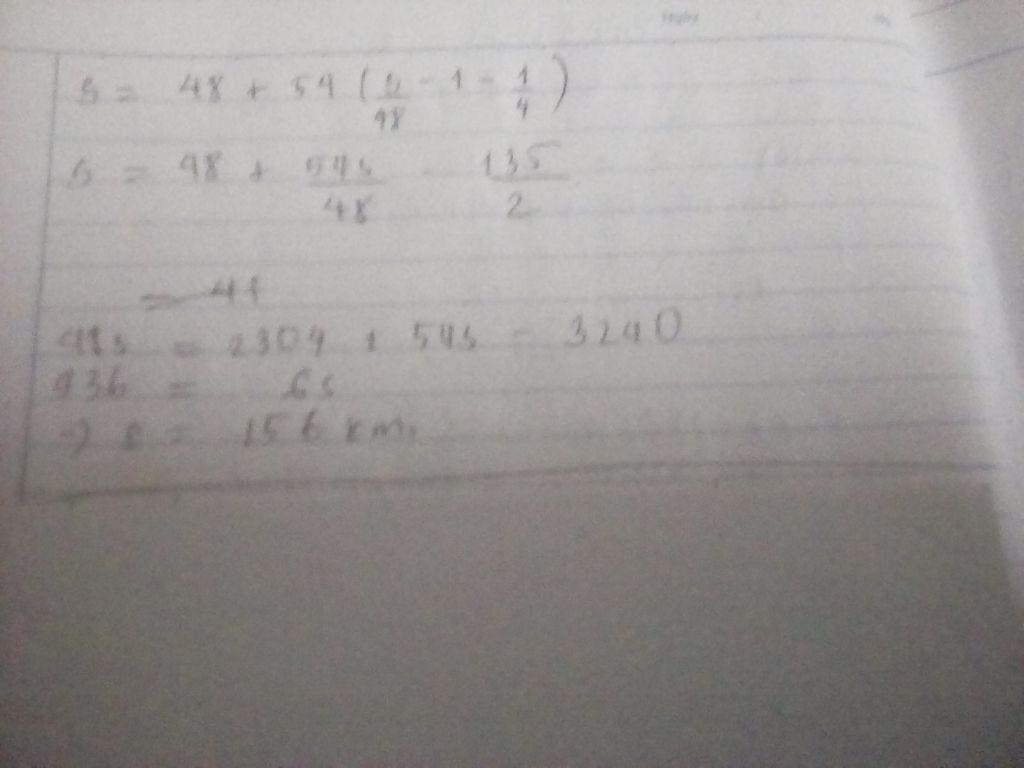 s = 48 + 54 ( s/48 - 1 - 1/4 )
s = 48 + 54s/48 - 135/2
= 41
48s = 2304 + 54s - 3240
936 = 6s
=> s = 156 km.